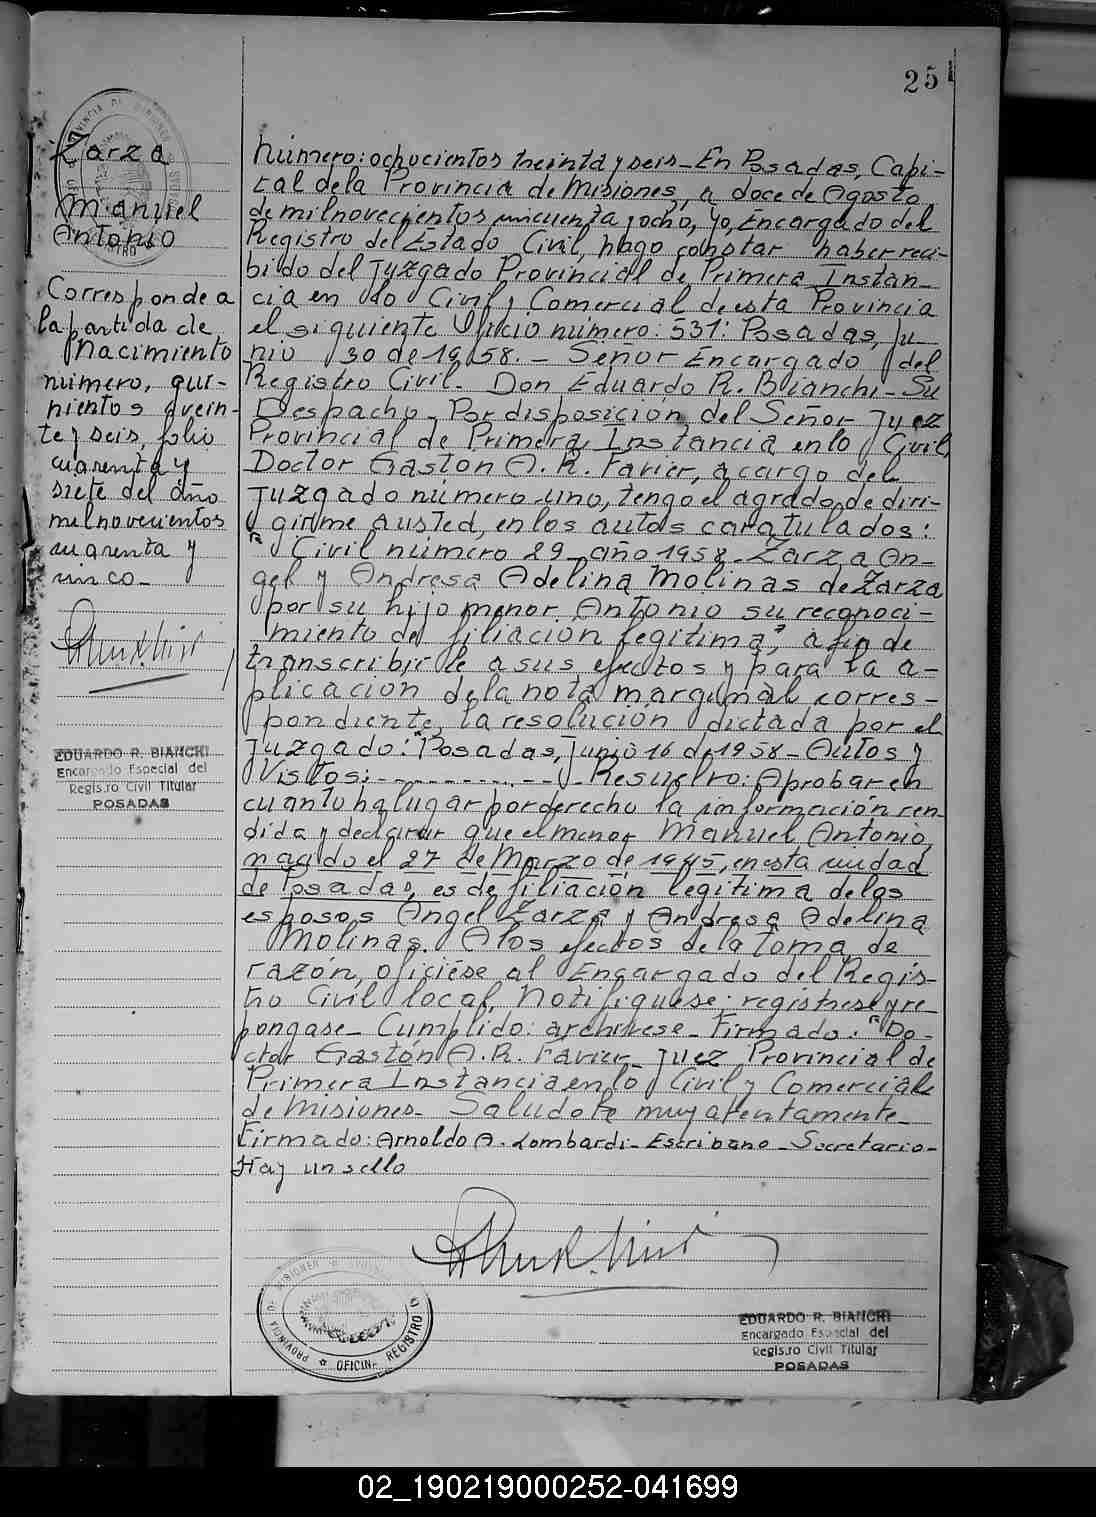 25
Zarza
Manuel
Antonio
Corresponde a
la partida de
nacimiento
número, qui-
nientos vein-
te y seis, folio
cuarenta y
siete del año
mil novecientos
cuarenta y
cinco_
EDUARDO R. BIANCHI
Encargado Especial del
Regis.ro Civil Titular
POSADAS
Número: ochocientos treinta y seis_ En Posadas, Capi-
tal de la Provincia de Misiones, a doce de Agosto
de mil novecientos cincuenta y ocho, Yo, Encargado del
Registro del Estado Civil, hago constar haber reci-
bido del Juzgado Provincial de Primera Instan-
cia en lo Civil y Comercial de esta Provincia
el siguiente Oficio número: 531: Posadas, Ju-
nio 30 de 1958. _ Señor Encargado del
Registro Civil_ Don Eduardo R. Bianchi_ Su
Despacho_ Por disposición del Señor Juez
Provincial de Primera Instancia en lo Civil,
Doctor Gastón A. R. Favier, a cargo del
Juzgado número uno, tengo el agrado de diri-
girme a usted, en los autos caratulados:
"Civil número 29_ año 1958_ Zarza An-
gel y Andresa Adelina Molinas de Zarza
por su hijo menor Antonio su reconoci-
miento de filiación legítima", a fin de
transcribirle a sus efectos y para la a-
plicación de la nota marginal corres-
pondiente, la resolución dictada por el
Juzgado: "Posadas, Junio 16 de 1958_ Autos y
Vistos: ........... Resuelvo: Aprobar en
cuanto ha lugar por derecho la información ren-
dida y declarar que el menor Manuel Antonio,
nacido el 27 de Marzo de 1945, en esta ciudad
de Posadas, es de filiación legítima de los
esposos Angel Zarza y Andresa Adelina
Molinas. A los efectos de la toma de
razón, ofíciese al Encargado del Regis-
tro Civil local. Notifíquese: regístrese y re-
pongase_ Cumplido: archívese_ Firmado: "Do-
ctor Gastón A. R. Favier_ Juez Provincial de
Primera Instancia en lo Civil y Comercial
de Misiones_ Saludo a Ud. muy atentamente_
Firmado: Arnoldo A. Lombardi_ Escribano_ Secretario_
Hay un sello
PROVINCIA DE MISIONES
OFICINA REGISTRO
EDUARDO R. BIANCHI
Encargado Especial del
Regis.ro Civil Titular
POSADAS
02_190219000252-041699